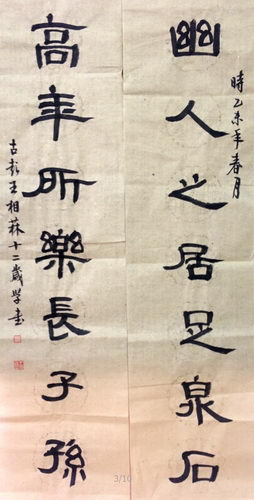 幽人之居足泉石
時乙未年春月
高年所樂長子孫
古彭王相林十二歲學書
3/10